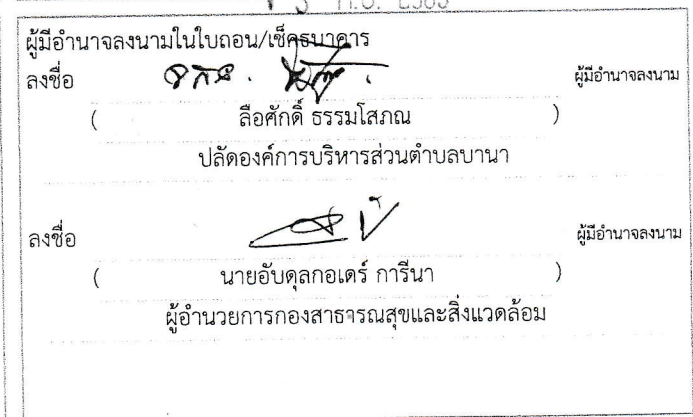 ผู้มีอำนาจลงนามในใบถอน/เช็คธนาคาร
ลงชื่อ ผู้มีอำนาจลงนาม
( ลือศักดิ์ ธรรมโสภณ )
ปลัดองค์การบริหารส่วนตำบลบานา
ลงชื่อ ผู้มีอำนาจลงนาม
( นายอับดุลกอเดร์ การีนา )
ผู้อำนวยการกองสาธารณสุขและสิ่งแวดล้อม